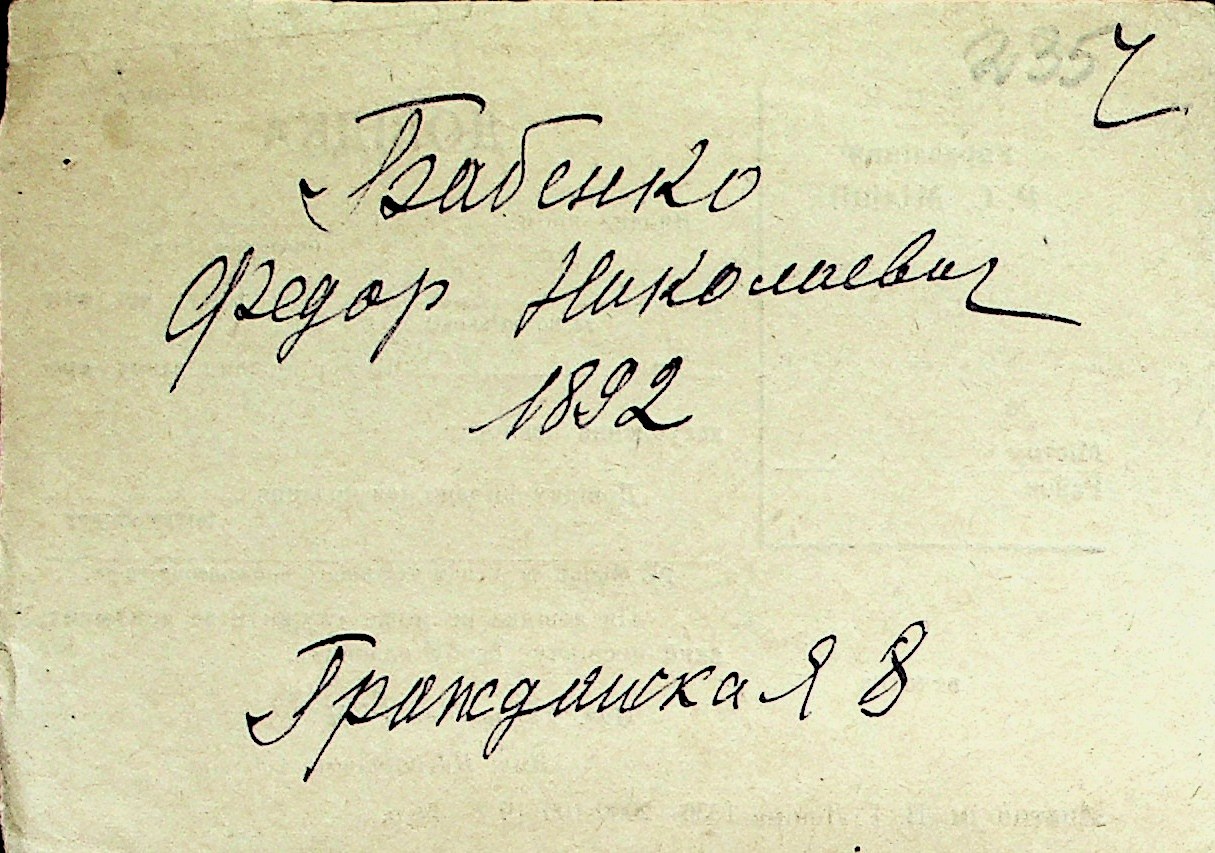 235
Бабенко
Федор Николаевич
1892
Гражданская 8